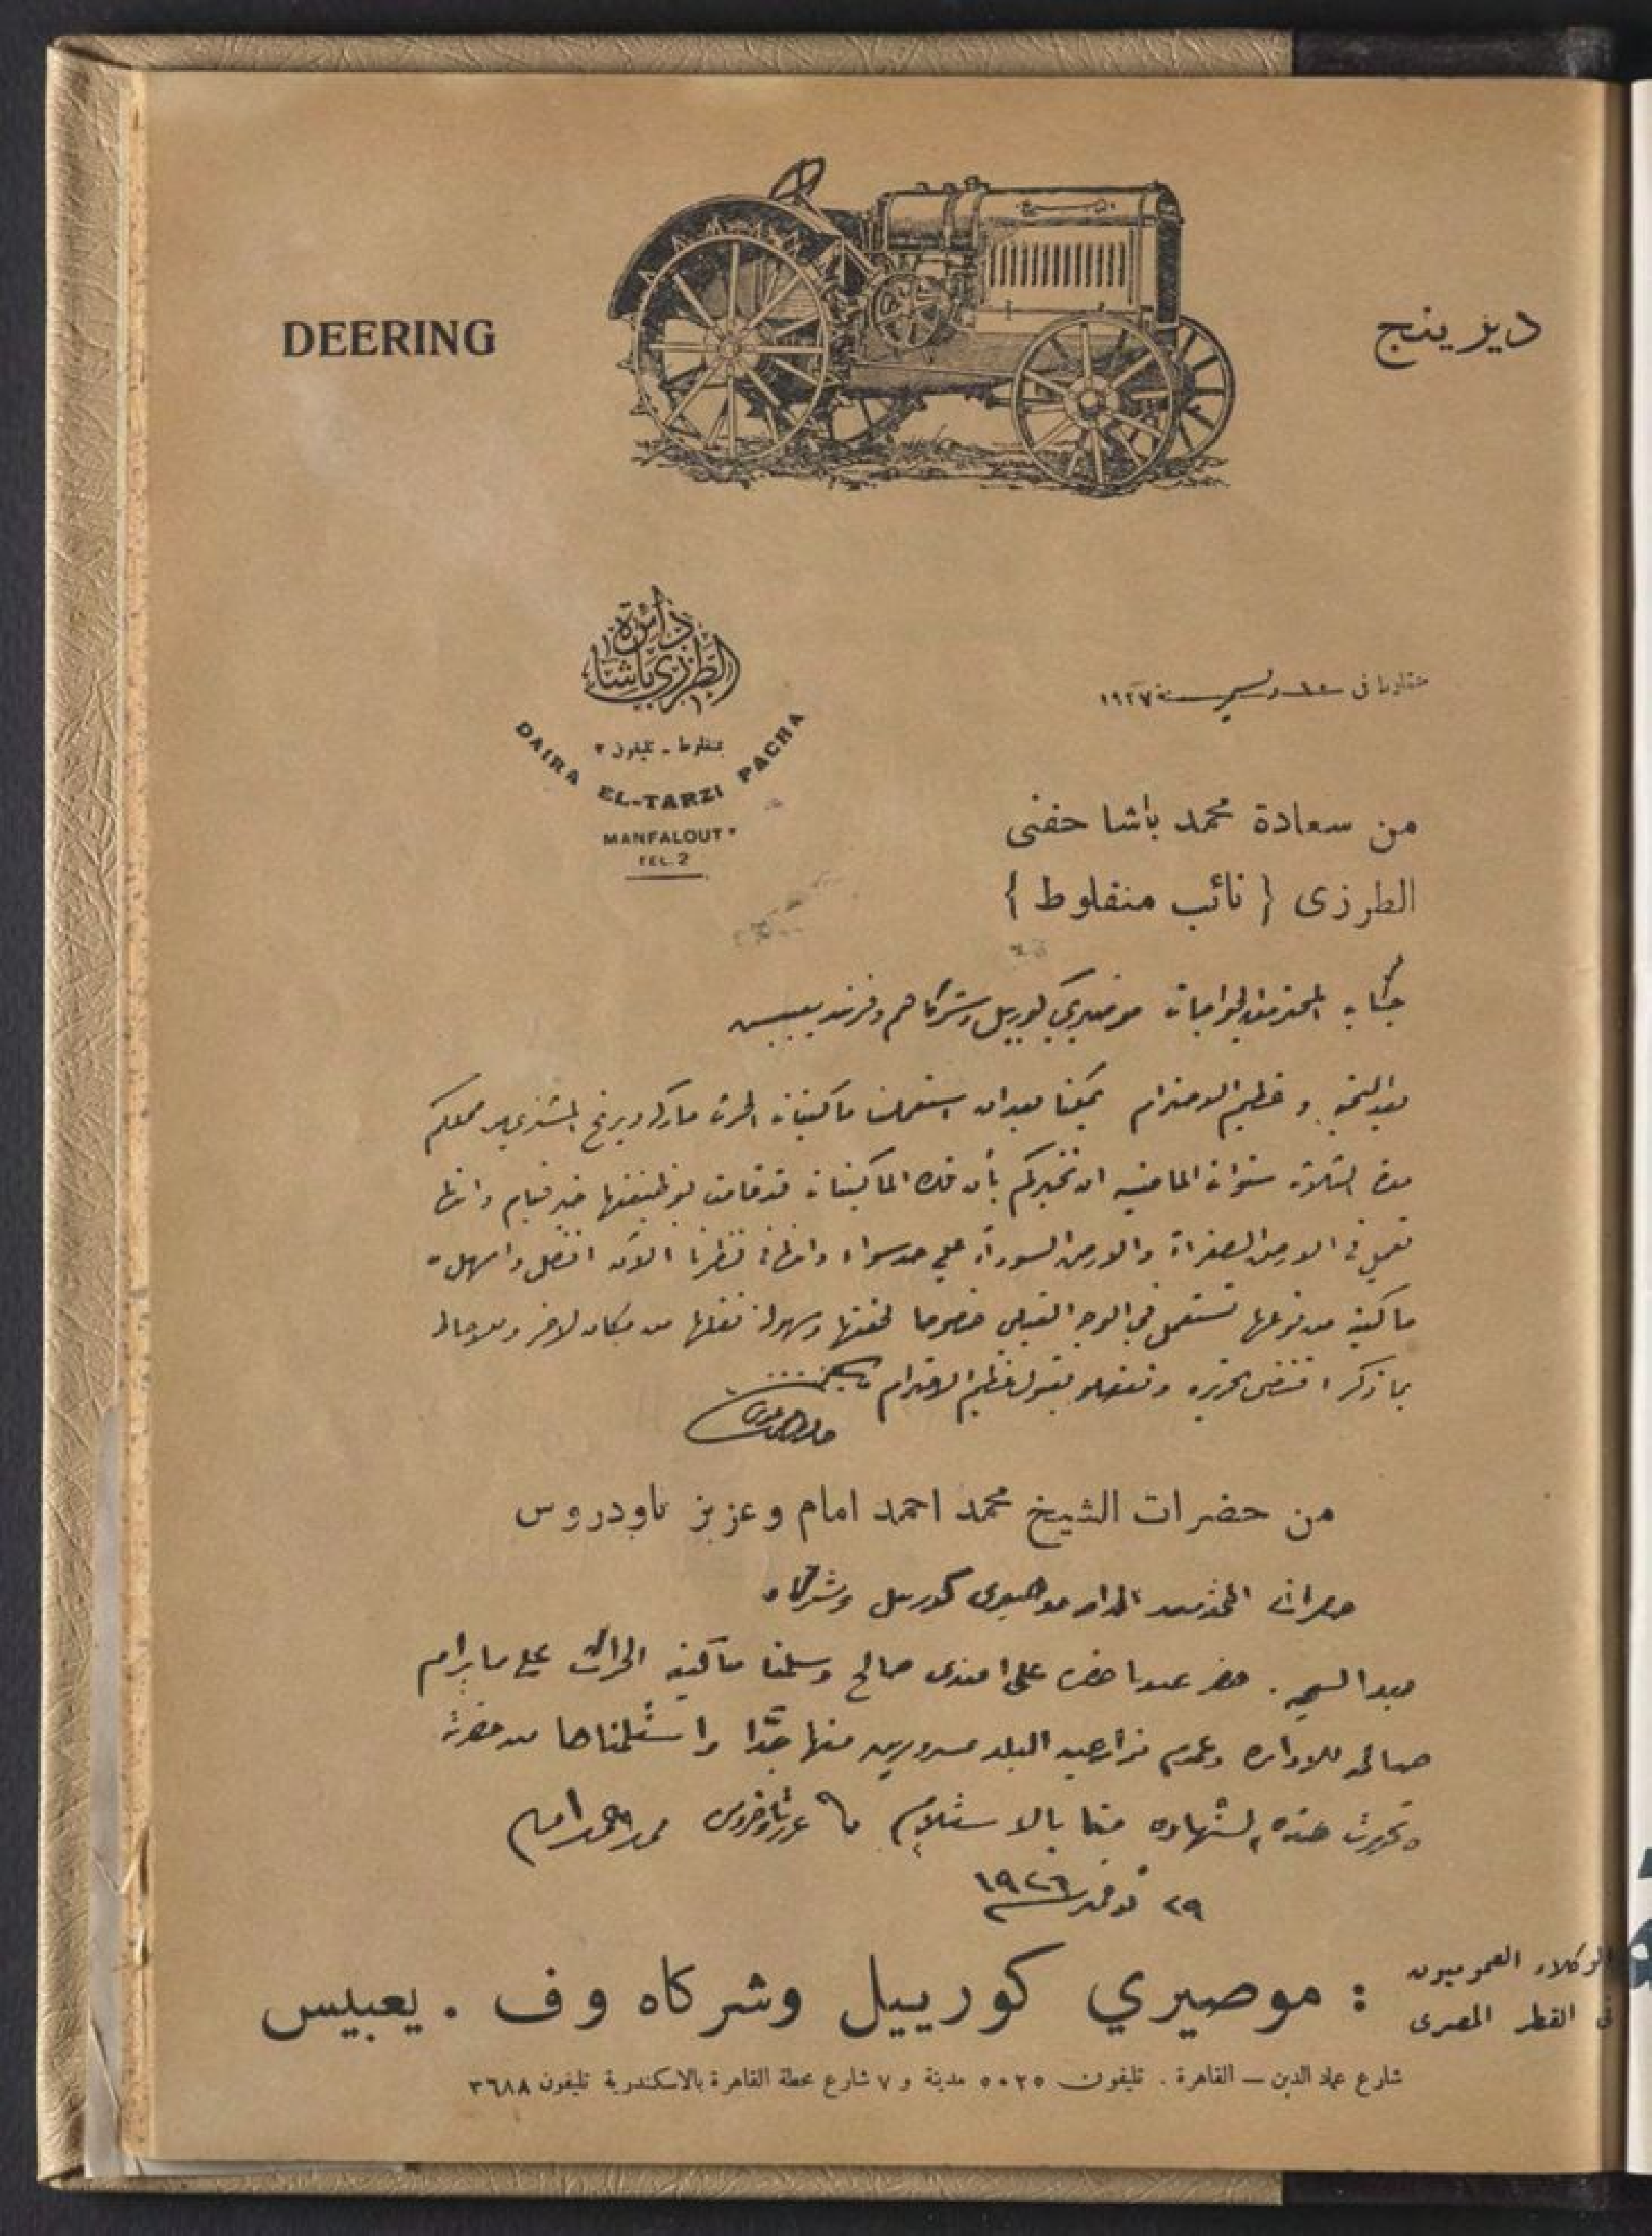 DEERING
ديرينج
دائرة
الطرزي باشا
بمنفلوط - تليفون ٢
DAIRA EL-TARZI PACHA
MANFALOUT
TEL. 2
من سعادة محمد باشا حفنى
الطرزى { نائب منفلوط }
جناب المحترمين الخواجات موصيري كورييل وشركاهم وفرند يعبيس
بعد التحية وعظيم الاحترام يمكننا بعد ان استعملنا ماكينات الحرث ماركة ديرنج المشترى من محلكم
مدة الثلاث سنوات الماضية ان نخبركم بأن هذه الماكينات قد قامت بوظيفتها خير قيام وانها
تعمل في الارض الصفراء والارض السوداء على حد سواء وانها في نظرنا الآن افضل واسهل
ماكينة من نوعها تستعمل في الوجه القبلي خصوصا لخفتها وسهولة نقلها من مكان لاخر
بما ذكر اقتضى تحريره وتفضلوا بقبول عظيم الاحترام
من حضرات الشيخ محمد احمد امام وعزيز تاودروس
حضرات المحترمين موصيرى كورييل وشركاه
بعد التحية . حضر علي افندى صالح وسلمنا ماكينة الحراث على ما يرام
صالحة للادارة وعموم مزارعين البلد مسرورين منها جدا واستلمناها من حضرته
وتحررت هذه الشهاده منا بالاستلام محمد احمد امام
٢٩ نوفمبر ١٩٢٦
الوكلاء العموميون
فى القطر المصرى
: موصيري كورييل وشركاه وف . يعبيس
شارع عماد الدين — القاهرة . تليفون ٥٠٢٥ مدينة و ٧ شارع محطة القاهرة بالاسكندرية تليفون ٣٦٨٨